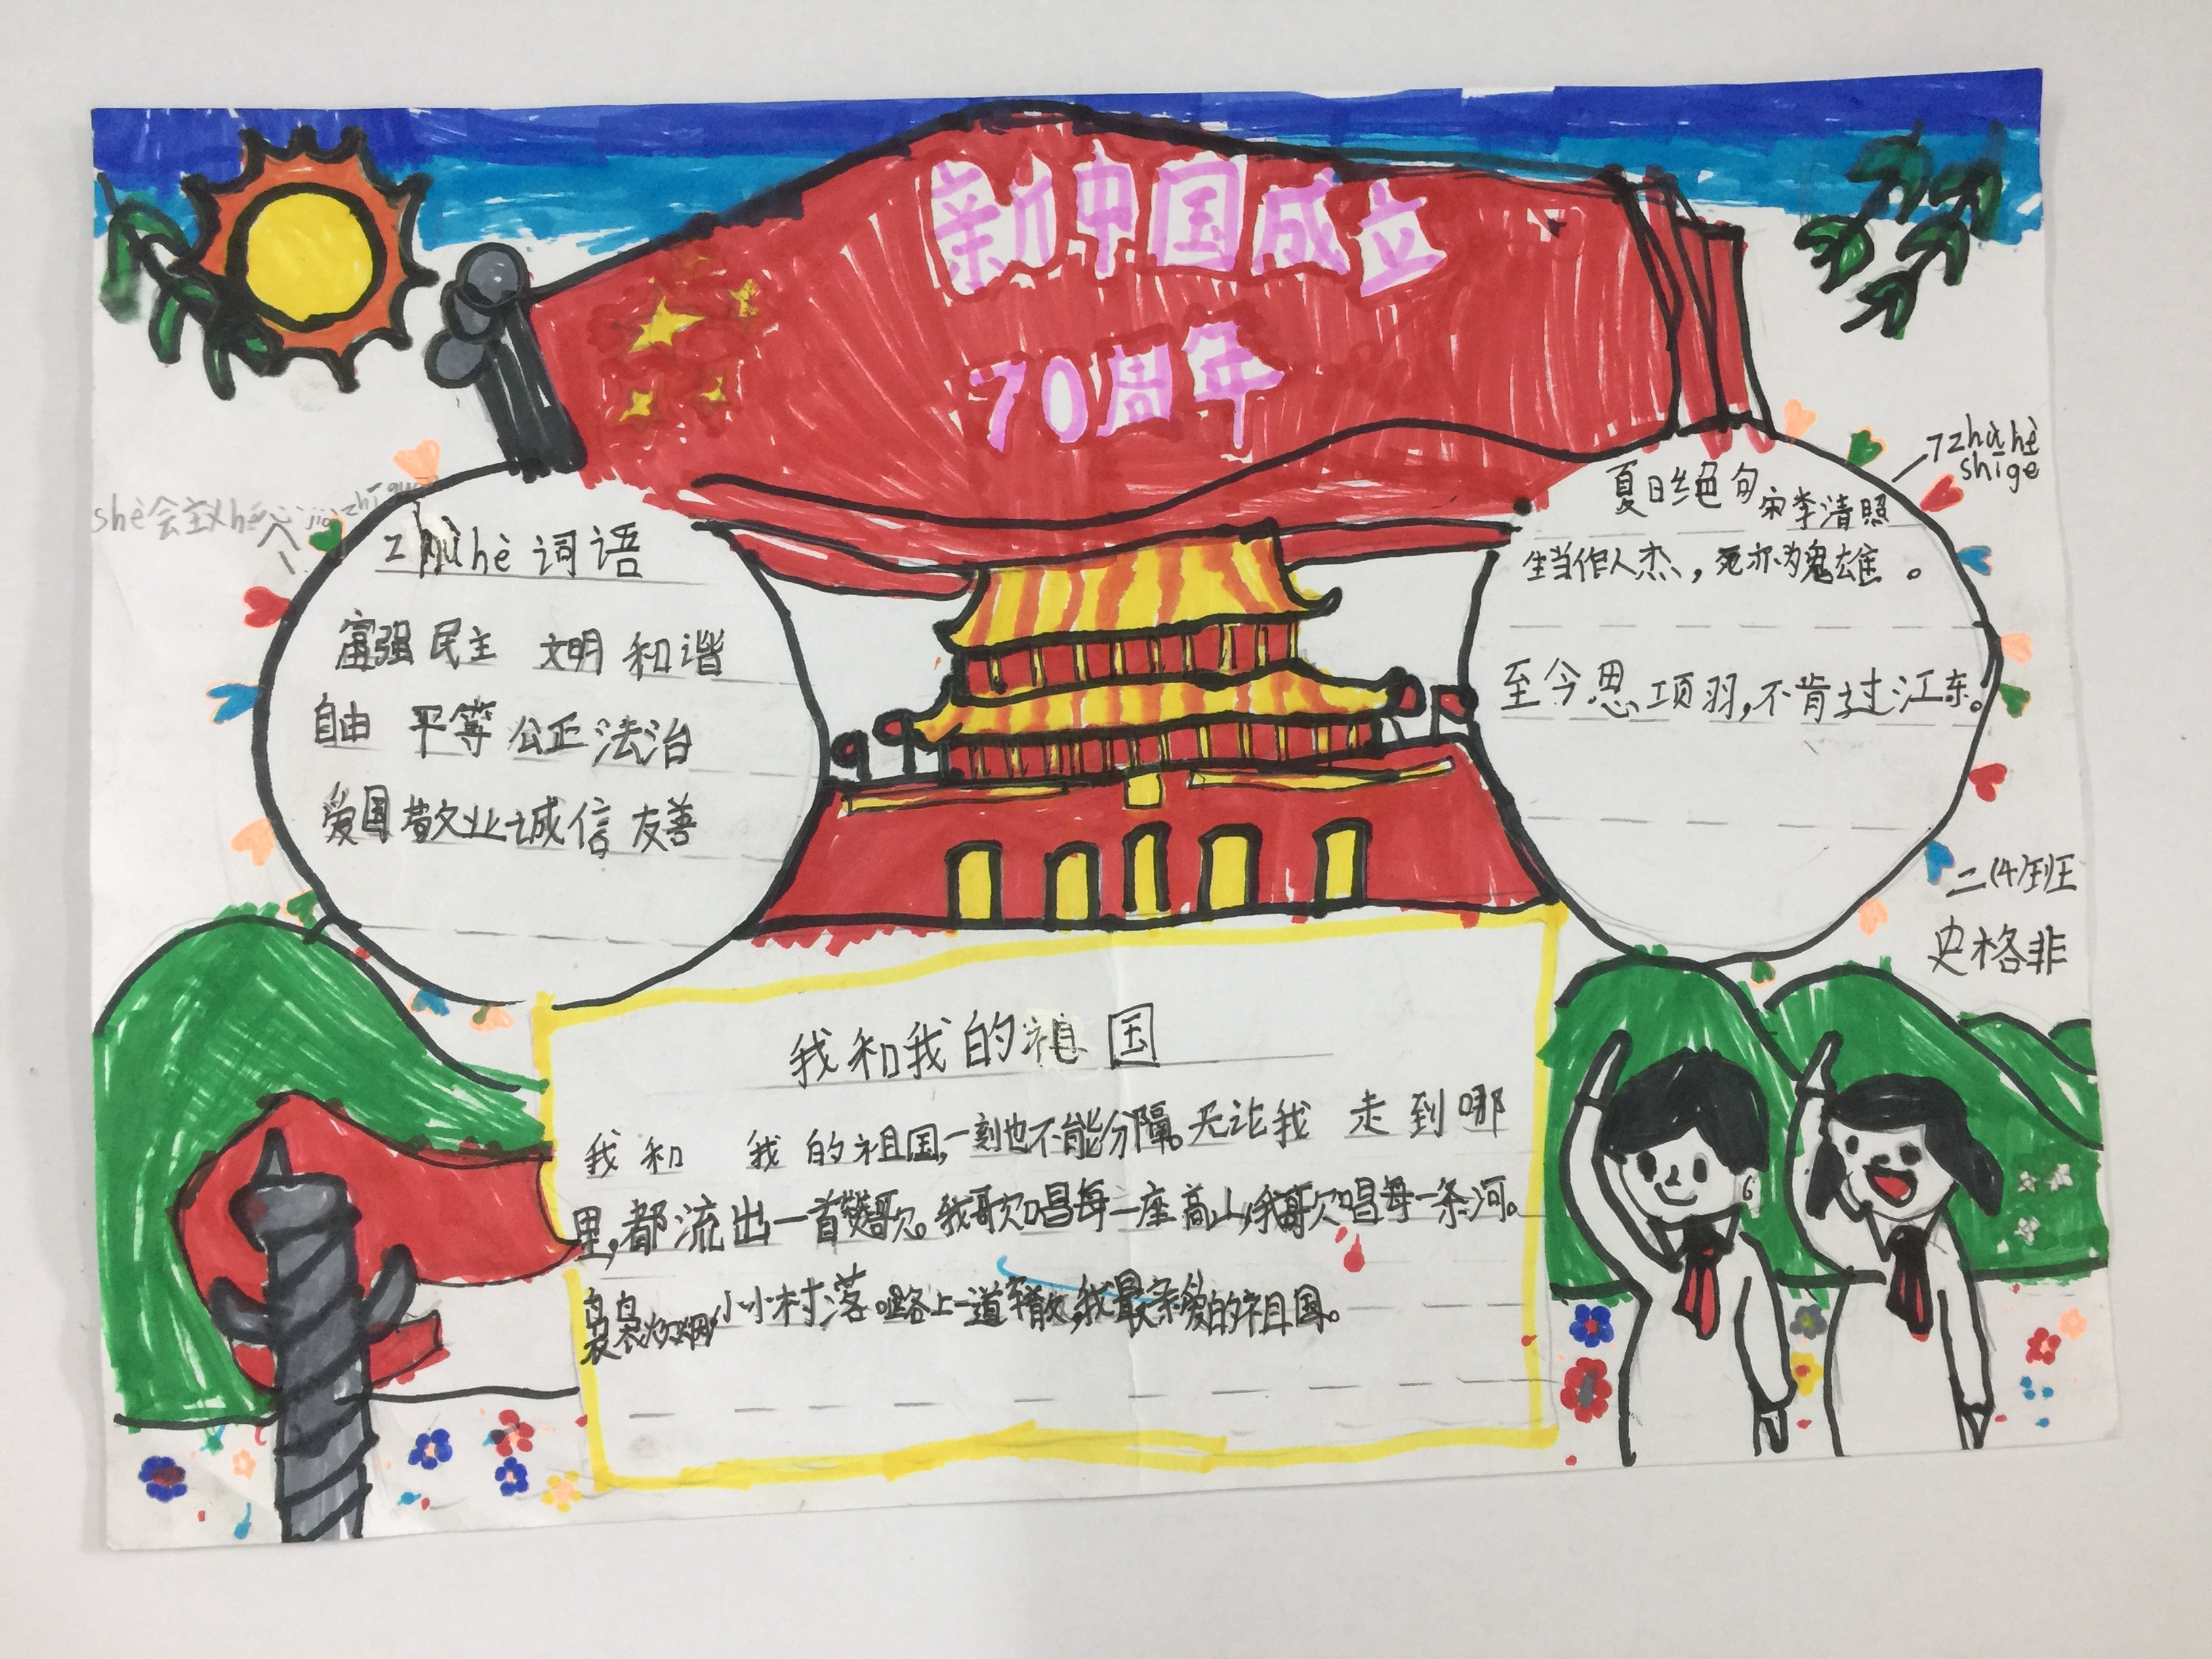 新中国成立
70周年
zhùhè 词语
富强 民主 文明 和谐
自由 平等 公正 法治
爱国 敬业 诚信 友善
夏日绝句 宋李清照
生当作人杰，死亦为鬼雄。
至今思项羽，不肯过江东。
zhùhè
shīge
二(4)班
史格非
我和我的祖国
我和我的祖国，一刻也不能分隔。无论我走到哪
里，都流出一首赞歌。我歌唱每一座高山，我歌唱每一条河。
袅袅炊烟，小小村落，路上一道辙，我最亲爱的祖国。